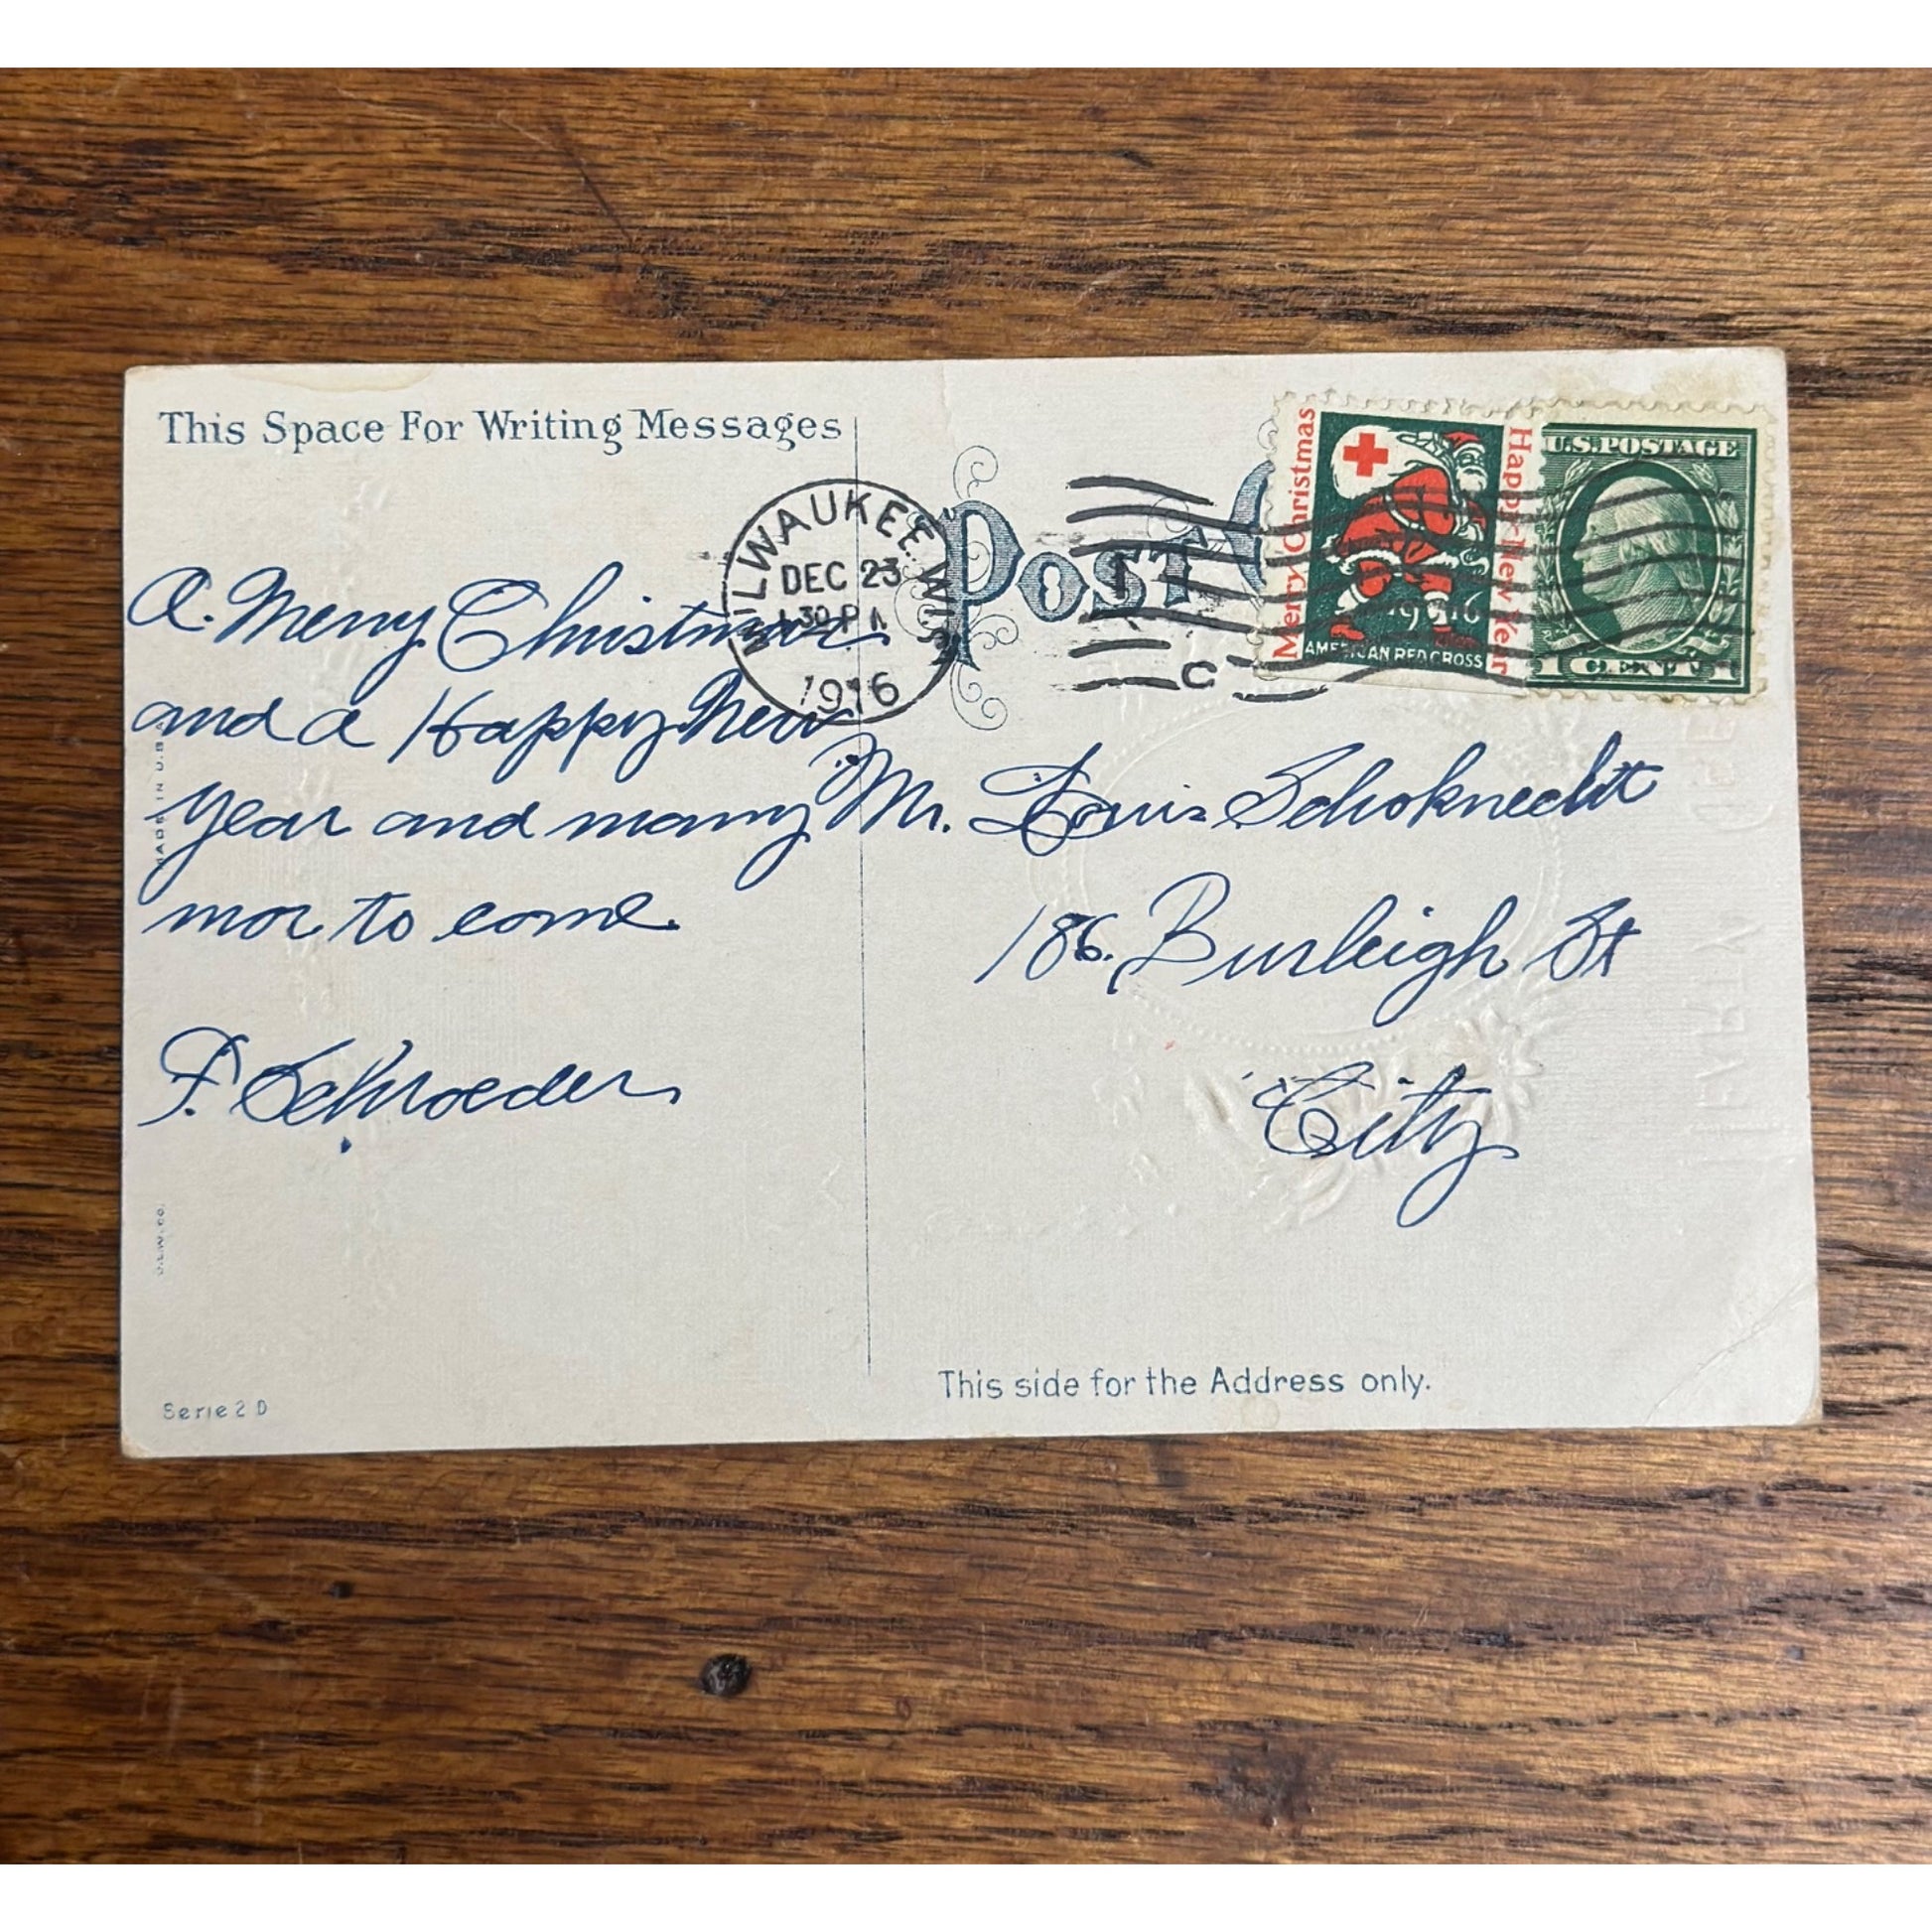 This Space For Writing Messages
MILWAUKEE, WIS.
DEC 23
30 P
1916
POST
C
Merry Christmas
Happy New Year
1916
AMERICAN RED CROSS
U.S. POSTAGE
1 CENT 1
A. Merry Christmas
and a Happy New
Year and many
mor to come
F. Schroeder
Mr. Louis Schoknecht
186. Burleigh St
City
MADE IN U.S.A.
Serie 2 D
This side for the Address only.